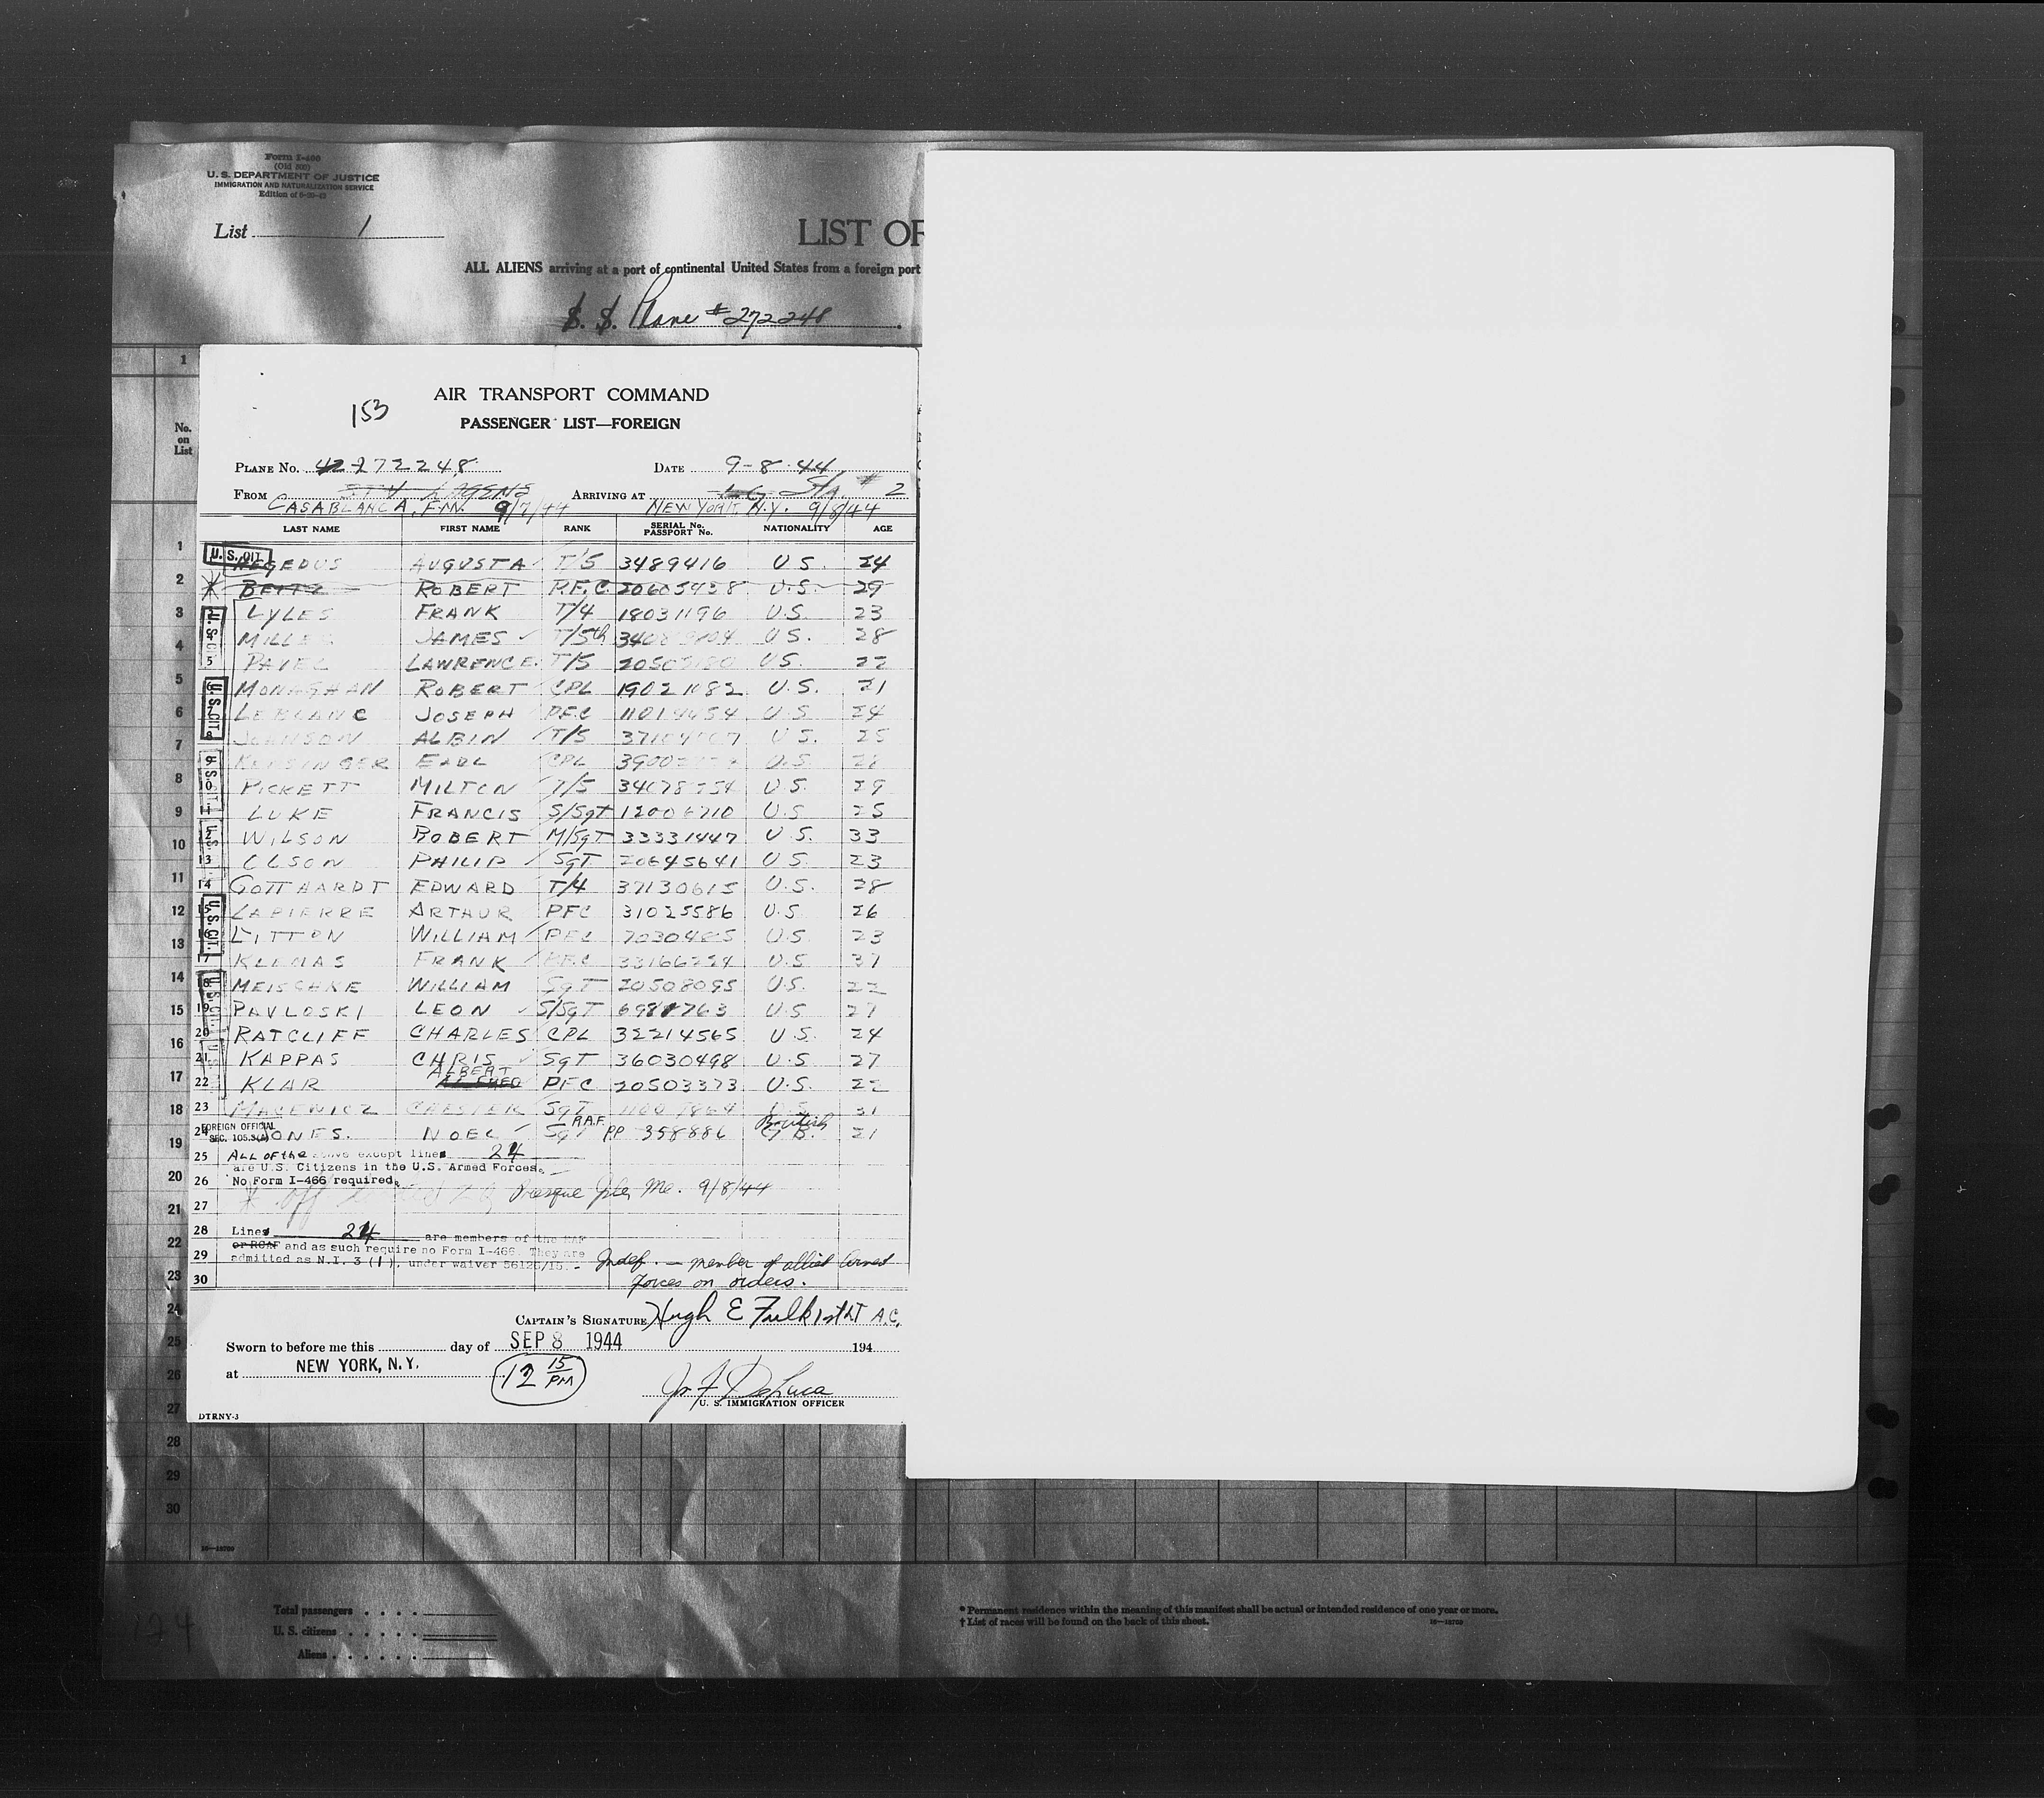 Form I-400
(Old 500)
U. S. DEPARTMENT OF JUSTICE
IMMIGRATION AND NATURALIZATION SERVICE
Edition of 6-20-43
List 1
LIST OF
ALL ALIENS arriving at a port of continental United States from a foreign port
S. S. Plane # 272248
No. on List
AIR TRANSPORT COMMAND
153
PASSENGER LIST—FOREIGN
PLANE No. 42-272248 DATE 9-8-44
FROM ARRIVING AT Sta. # 2
CASABLANCA, F.M. 9/7/44 NEW YORK, N.Y. 9/8/44
LAST NAME FIRST NAME RANK SERIAL No. PASSPORT No. NATIONALITY AGE
U. S. CIT.
1 HEGEDUS AUGUSTA T/5 3489416 U.S. 24
2 BEITZ ROBERT P.F.C. 20605938 U.S. 29
3 LYLES FRANK T/4 18031196 U.S. 23
4 JAMES T/5th U.S. 28
5 LAWRENCE T/5 U.S. 22
MONAGHAN ROBERT CPL 19021082 U.S. 21
LEBLANC JOSEPH PFC U.S. 24
8 JOHNSON ALBIN T/5 U.S. 25
9 EARL CPL U.S.
10 PICKETT MILTON T/5 U.S. 29
11 LUKE FRANCIS S/Sgt 12006710 U.S. 25
12 WILSON ROBERT M/SgT 33331447 U.S. 33
13 OLSON PHILIP SgT 20645641 U.S. 23
14 GOTTHARDT EDWARD T/4 37130615 U.S. 28
15 LAPIERRE ARTHUR PFC 31025586 U.S. 26
16 LITTON WILLIAM PFC 7030485 U.S. 23
17 KLEMAS FRANK PFC U.S. 37
18 MEISCHKE WILLIAM SgT 20508095 U.S. 22
19 PAVLOSKI LEON S/SgT 6981763 U.S. 27
20 RATCLIFF CHARLES CPL 32214565 U.S. 24
21 KAPPAS CHRIS SgT 36030498 U.S. 27
22 KLAR ALBERT ALFRED PFC 20503373 U.S. 22
23 MACEWICZ CHESTER SgT U.S. 31
FOREIGN OFFICIAL
SEC. 105.3(A)
24 JONES. NOEL SgT R.A.F. PP 358886 British G.B. 21
25 ALL of the above except lines 24
are U.S. Citizens in the U.S. Armed Forces.
26 No Form I-466 required.
27 * off Presque Isle, Me. 9/8/44
28 Lines 24 are members of the RAF
or RCAF and as such require no Form I-466. They are
29 admitted as N.I. 3 (1), under waiver 56125/15. - Indef. — member of allied Armed
30 Forces on orders.
CAPTAIN'S SIGNATURE Hugh E Fulk 1st LT A.C.
Sworn to before me this day of SEP 8 1944 194
at NEW YORK, N.Y.
12 15 PM
Jn F DeLuca
U. S. IMMIGRATION OFFICER
DTRNY-3
28
29
30
16—18709
Total passengers
U. S. citizens
Aliens
124
* Permanent residence within the meaning of this manifest shall be actual or intended residence of one year or more.
† List of races will be found on the back of this sheet.
16—18709